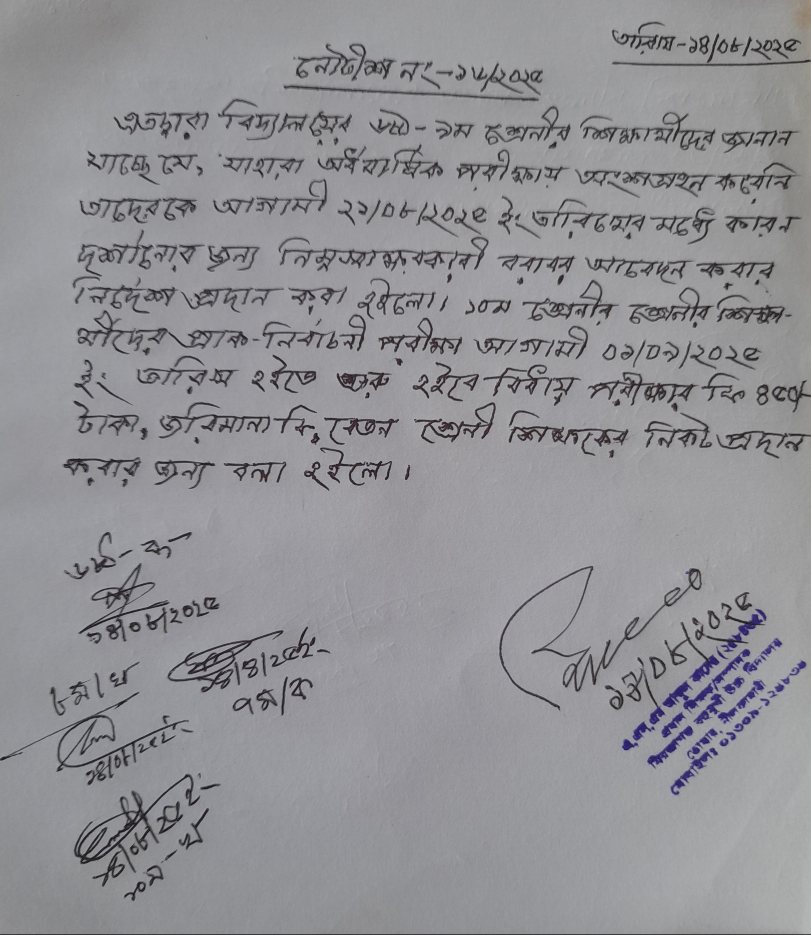 তারিখ-১৪/০৮/২০২৫
নোটীশ নং-১৮/২০২৫
এতদ্বারা বিদ্যালয়ের ৬ষ্ঠ-৯ম শ্রেনীর শিক্ষার্থীদের জানান
যাচ্ছে যে, যাহারা অর্ধবার্ষিক পরীক্ষায় অংশগ্রহন করেনি
তাদেরকে আগামী ২১/০৮/২০২৫ ইং তারিখের মধ্যে কারন
দর্শানোর জন্য নিম্নস্বাক্ষরকারী বরাবর আবেদন করার
নির্দেশ প্রদান করা হইলো। ১০ম শ্রেনীর শ্রেনীর শিক্ষা-
র্থীদের প্রাক-নির্বাচনী পরীক্ষা আগামী ০১/০৯/২০২৫
ইং তারিখ হইতে শুরু হইবে বিধায় পরীক্ষার ফি ৪৫০/-
টাকা, জরিমানা ফি, বেতন শ্রেনী শিক্ষকের নিকট প্রদান
করার জন্য বলা হইলো।
৬ষ্ঠ-ক-
১৪/০৮/২০২৫
১৪/৮/২০২৫ইং-
৭ম/ক
৮ম/খ
১৪/০৮/২৫ইং-
১৪/০৮/২৫ইং-
১০ম-খ
১৪/০৮/২০২৫
প্রধান শিক্ষক
বহুমুখী উচ্চ বিদ্যালয়
ডোমার, নীলফামারী